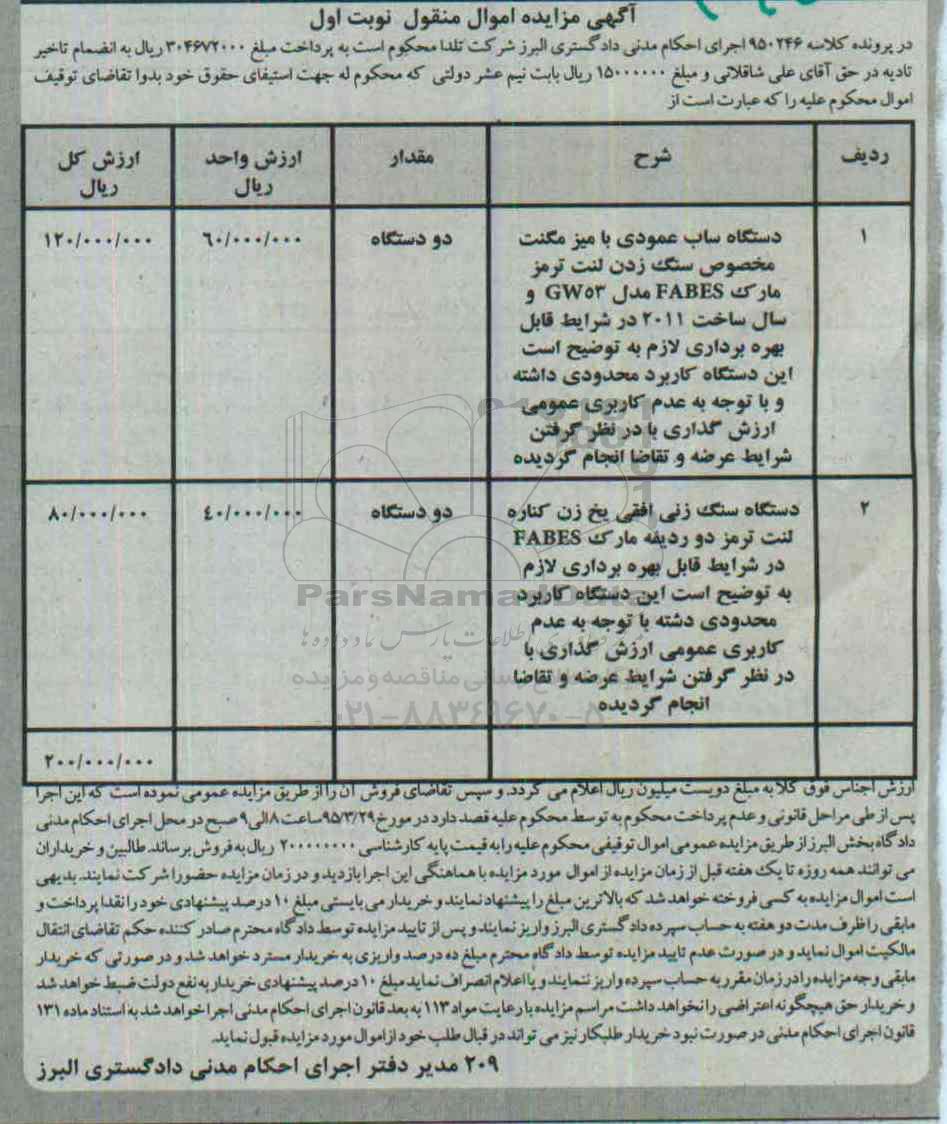 آگهی مزایده اموال منقول نوبت اول
در پرونده کلاسه ۹۵۰۲۴۶ اجرای احکام مدنی دادگستری البرز شرکت تلدا محکوم است به پرداخت مبلغ ۳۰۴۶۷۲۰۰۰ ریال به انضمام تاخیر
تادیه در حق آقای علی شاقلانی و مبلغ ۱۵۰۰۰۰۰۰ ریال بابت نیم عشر دولتی که محکوم له جهت استیفای حقوق خود بدوا تقاضای توقیف
اموال محکوم علیه را که عبارت است از
ردیف شرح مقدار ارزش واحد ریال ارزش کل ریال
۱ دستگاه ساب عمودی با میز مگنت دو دستگاه ۶۰/۰۰۰/۰۰۰ ۱۲۰/۰۰۰/۰۰۰
مخصوص سنگ زدن لنت ترمز
مارک FABES مدل GW۵۳ و
سال ساخت ۲۰۱۱ در شرایط قابل
بهره برداری لازم به توضیح است
این دستگاه کاربرد محدودی داشته
و با توجه به عدم کاربری عمومی
ارزش گذاری با در نظر گرفتن
شرایط عرضه و تقاضا انجام گردیده
۲ دستگاه سنگ زنی افقی یخ زن کناره دو دستگاه ۴۰/۰۰۰/۰۰۰ ۸۰/۰۰۰/۰۰۰
لنت ترمز دو ردیفه مارک FABES
در شرایط قابل بهره برداری لازم
به توضیح است این دستگاه کاربرد
محدودی دشته با توجه به عدم
کاربری عمومی ارزش گذاری با
در نظر گرفتن شرایط عرضه و تقاضا
انجام گردیده
۲۰۰/۰۰۰/۰۰۰
ارزش اجناس فوق کلا به مبلغ دویست میلیون ریال اعلام می گردد. و سپس تقاضای فروش آن را از طریق مزایده عمومی نموده است که این اجرا
پس از طی مراحل قانونی و عدم پرداخت محکوم به توسط محکوم علیه قصد دارد در مورخ ۹۵/۳/۲۹ ساعت ۸ الی ۹ صبح در محل اجرای احکام مدنی
دادگاه بخش البرز از طریق مزایده عمومی اموال توقیفی محکوم علیه را به قیمت پایه کارشناسی ۲۰۰۰۰۰۰۰۰ ریال به فروش برساند. طالبین و خریداران
می توانند همه روزه تا یک هفته قبل از زمان مزایده از اموال مورد مزایده با هماهنگی این اجرا بازدید و در زمان مزایده حضورا شرکت نمایند. بدیهی
است اموال مزایده به کسی فروخته خواهد شد که بالاترین مبلغ را پیشنهاد نمایند و خریدار می بایستی مبلغ ۱۰ درصد پیشنهادی خود را نقدا پرداخت و
مابقی را ظرف مدت دو هفته به حساب سپرده دادگستری البرز واریز نمایند و پس از تایید مزایده توسط دادگاه محترم صادر کننده حکم تقاضای انتقال
مالکیت اموال نماید و در صورت عدم تایید مزایده توسط دادگاه محترم مبلغ ده درصد واریزی به خریدار مسترد خواهد شد و در صورتی که خریدار
مابقی وجه مزایده را در زمان مقرر به حساب سپرده واریز ننمایند و یا اعلام انصراف نماید مبلغ ۱۰ درصد پیشنهادی خریدار به نفع دولت ضبط خواهد شد
و خریدار حق هیچگونه اعتراضی را نخواهد داشت مراسم مزایده با رعایت مواد ۱۱۳ به بعد قانون اجرای احکام مدنی اجرا خواهد شد به استناد ماده ۱۳۱
قانون اجرای احکام مدنی در صورت نبود خریدار طلبکار نیز می تواند در قبال طلب خود از اموال مورد مزایده قبول نماید.
۲۰۹ مدیر دفتر اجرای احکام مدنی دادگستری البرز
ParsNamadData
۰۲۱-۸۸۳۴۹۶۷۰-۸